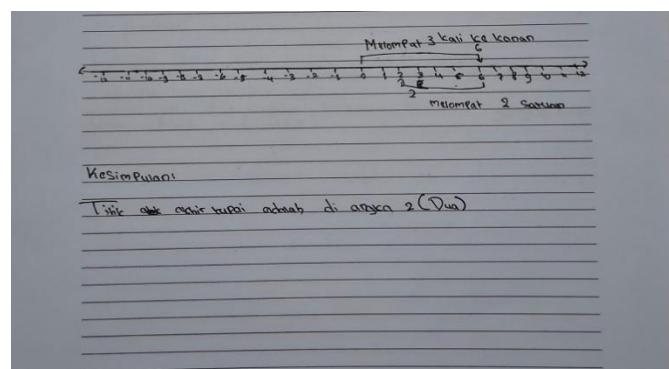 Melompat 3 kali ke kanan
6
-12 -11 -10 -9 -8 -7 -6 -5 -4 -3 -2 -1 0 1 2 3 4 5 6 7 8 9 10 11 12
2
melompat 2 satuan
Kesimpulan:
Titik akhir tupai adalah di angka 2 (Dua)